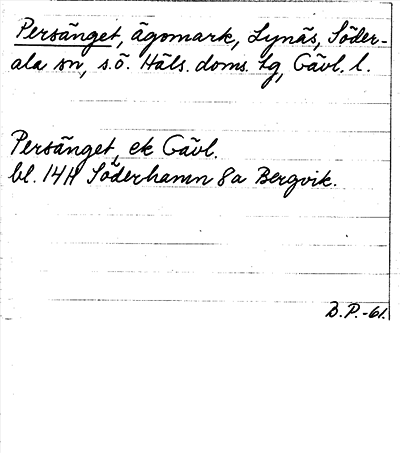 Persänget, ägomark, Lynäs, Söder-
ala sn, s.ö. Häls. doms. tg, Gävl. l.
Persänget, ek Gävl.
bl. 14H Söderhamn 8a Bergvik.
B.P.-61.